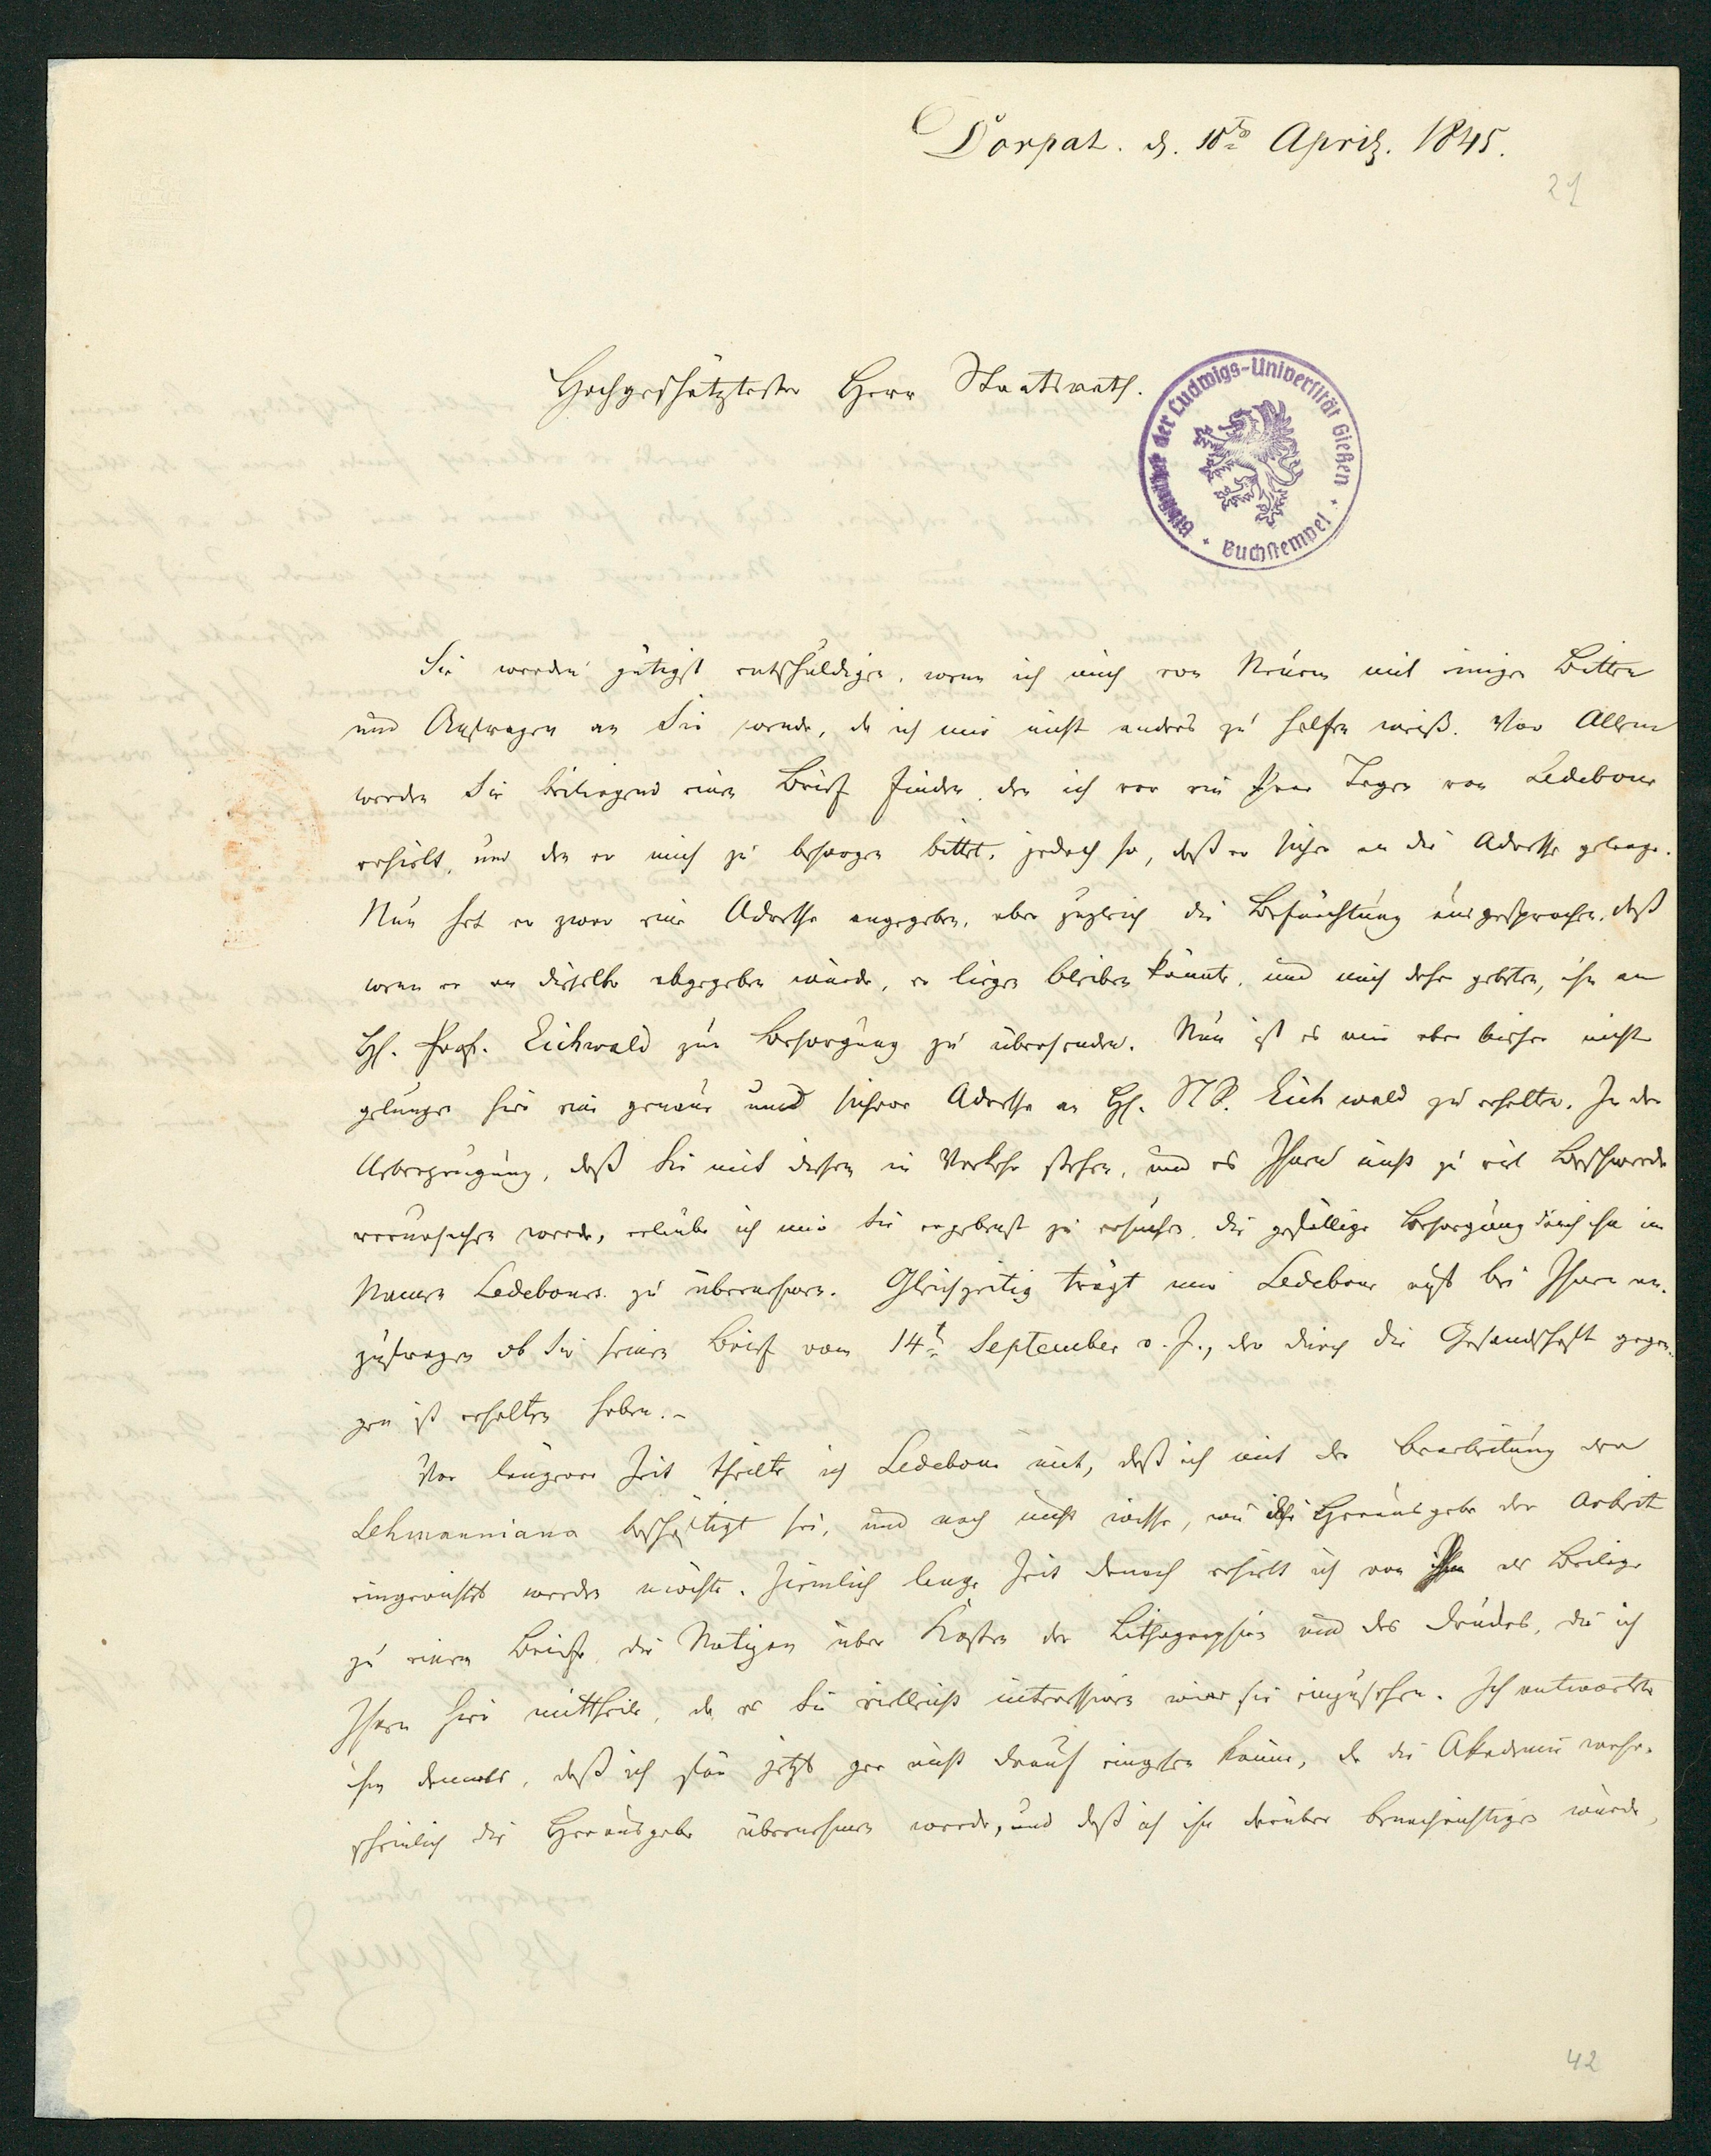 Dorpat. d. 10te April. 1845.
21
Hochgeschätztester Herr Staatsrath.
Bibliothek der Ludwigs-Universität Gießen
Buchstempel
Sie werden gütigst entschuldigen, wenn ich mich von Neuem mit einigen Bitten
und Anfragen an Sie wende, da ich mir nicht anders zu helfen weiß. Vor Allem
werden Sie beiliegend einen Brief finden, den ich vor ein Paar Tagen von Ledebour
erhielt, und den er mich zu besorgen bittet, jedoch so, daß er sicher an die Adresse gelange.
Nun hat er zwar eine Adresse angegeben, aber zugleich die Befürchtung ausgesprochen, daß
wenn er an dieselbe abgegeben würde, er liegen bleiben könnte, und mich daher gebeten, ihn an
H. Prof. Eichwald zur Besorgung zu übersenden. Nun ist es mir aber bisher nicht
gelungen hier eine genaue und sichere Adresse an H. StR. Eichwald zu erhalten. In der
Ueberzeugung, daß Sie mit diesem in Verkehr stehen, und es Ihnen nicht zu viel Beschwerde
verursachen werde, erlaube ich mir Sie ergebenst zu ersuchen, die gefällige Besorgung durch ihn im
Namen Ledebours zu übernehmen. Gleichzeitig trägt mir Ledebour auf bei Ihnen an-
zufragen ob Sie seinen Brief vom 14t September v. J., der durch die Gesandschaft gegan-
gen ist erhalten haben.-
Vor längerer Zeit theilte ich Ledebour mit, daß ich mit der Bearbeitung der
Lehmanniana beschäftigt sei, und noch nicht wisse, wie die Herausgabe der Arbeit
eingerichtet werden möchte. Ziemlich lange Zeit danach erhielt ich von ihm als Beilage
zu einem Briefe, die Notizen über Kosten der Lithographien und des Druckes, die ich
Ihnen hier mittheile, da es Sie vielleicht interessiren wird sie einzusehen. Ich antwortete
ihm damals, daß ich für jetzt gar nicht drauf eingehen könne, da die Akademie wahr-
scheinlich die Herausgabe übernehmen werde, und daß ich ihn darüber benachrichtigen würde,
42